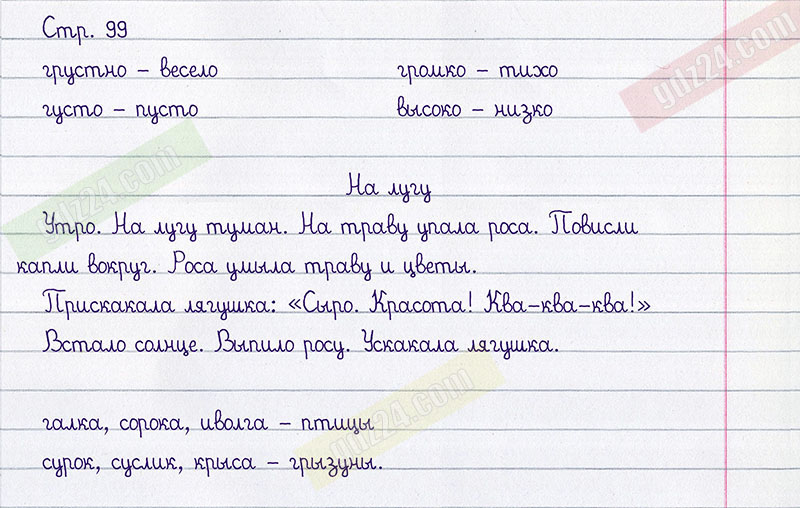 Стр. 99
грустно – весело громко – тихо
густо – пусто высоко – низко
На лугу
Утро. На лугу туман. На траву упала роса. Повисли
капли вокруг. Роса умыла траву и цветы.
Прискакала лягушка: «Сыро. Красота! Ква-ква-ква!»
Встало солнце. Выпило росу. Ускакала лягушка.
галка, сорока, иволга – птицы
сурок, суслик, крыса – грызуны.
gdz24.com
gdz24.com
gdz24.com